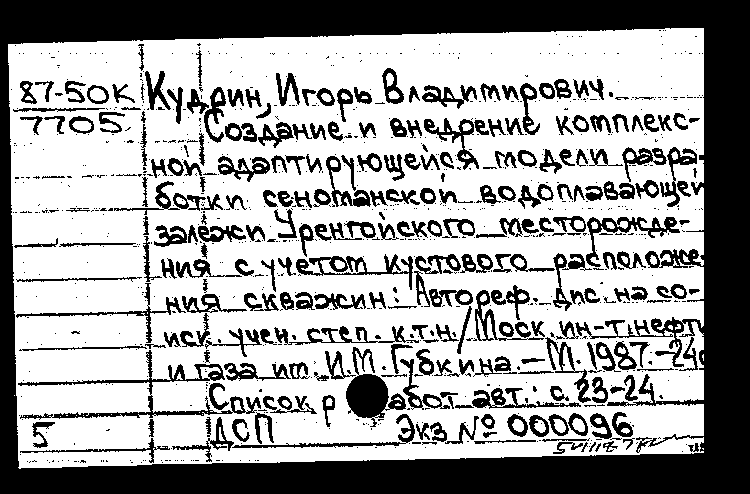 87-50к Кудрин, Игорь Владимирович.
7705 Создание и внедрение комплекс-
ной адаптирующейся модели разра-
ботки сеноманской водоплавающей
залежи Уренгойского месторожде-
ния с учетом кустового расположе-
ния скважин: Автореф. дис. на со-
иск. учен. степ. к.т.н./Моск. ин-т. нефти
и газа им. И.М. Губкина.-М. 1987.-24с
Список работ авт.: с. 23-24.
5 ДСП Экз № 000096